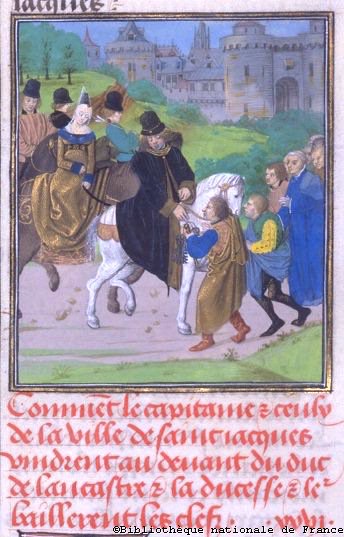 Jacques
Comment le capitaine & ceulx
de la ville de saint iacques
vindrent au devant du duc
de lancastre & la ducesse & le2
baillerent les clefz
©Bibliothèque nationale de France